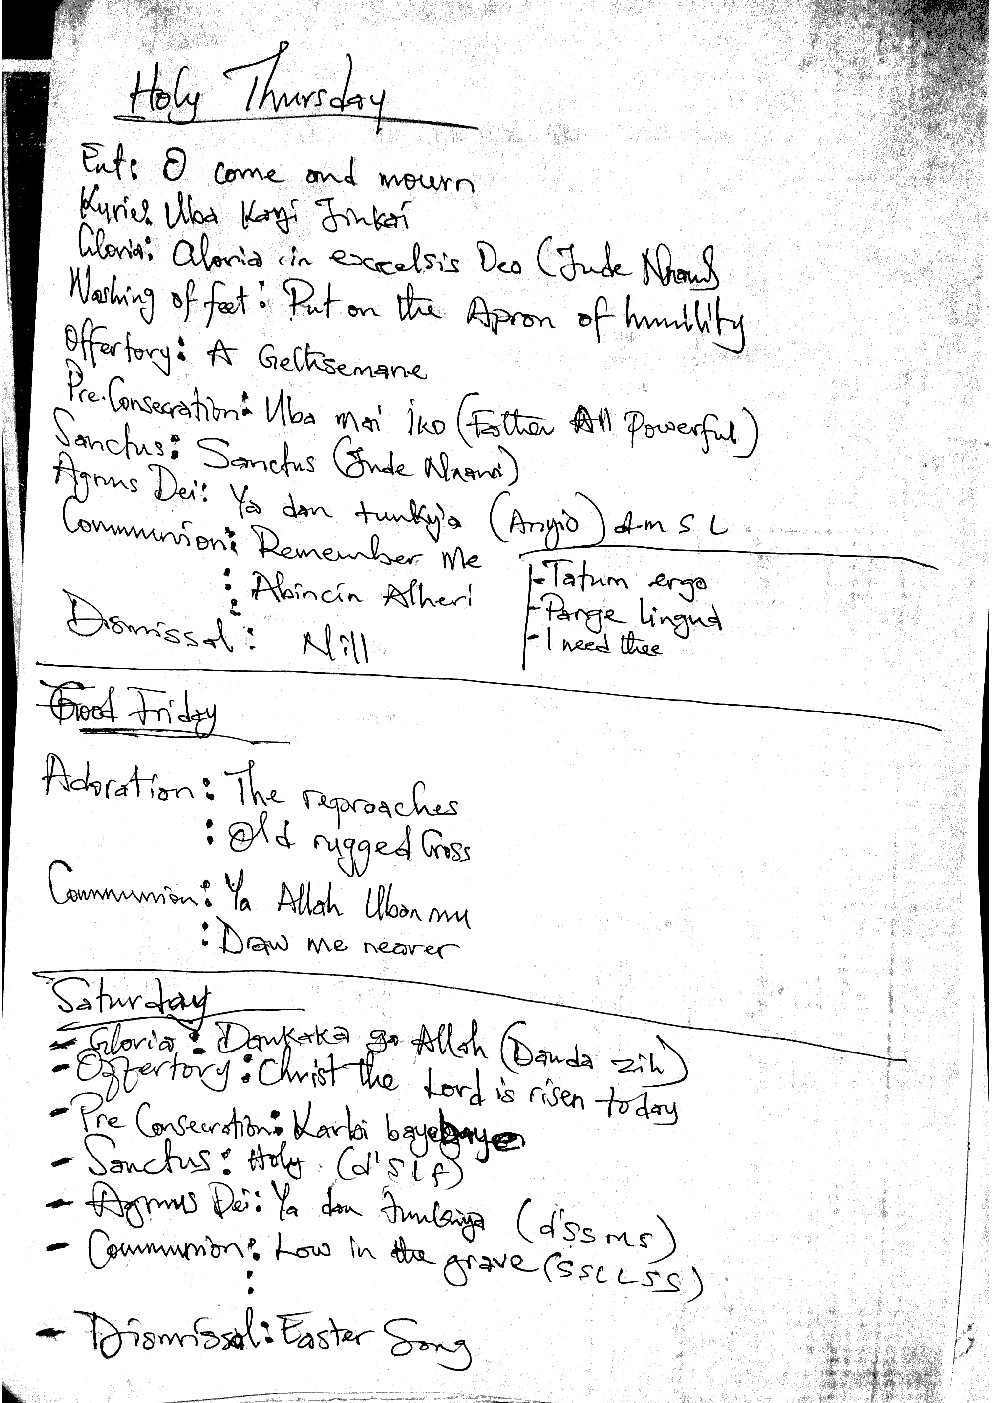 Holy Thursday
Ent: O come and mourn
Kyrie: Uba Kayi Jinkai
Gloria: Gloria in excelsis Deo (Jude Nnam)
Washing of feet: Put on the Apron of humility
Offertory: A Gethsemane
Pre-Consecration: Uba mai iko (Father All Powerful)
Sanctus: Sanctus (Jude Nnam)
Agnus Dei: Ya dan tunkiya (Angio) d m s L
Communion: Remember Me
: Abincin Alheri
Dismissal: Nill
- Tatum ergo
- Pange lingua
- I need thee
Good Friday
Adoration: The reproaches
: Old rugged Cross
Communion: Ya Allah Uban mu
: Draw me nearer
Saturday
- Gloria: Daukaka ga Allah (Danda zih)
- Offertory: Christ the Lord is risen today
- Pre Consecration: Karbi baye baye
- Sanctus: Holy (d' S L f)
- Agnus Dei: Ya dan tunkiya (d' s s m s)
- Communion: Low in the grave (S S L L S S)
:
- Dismissal: Easter Song